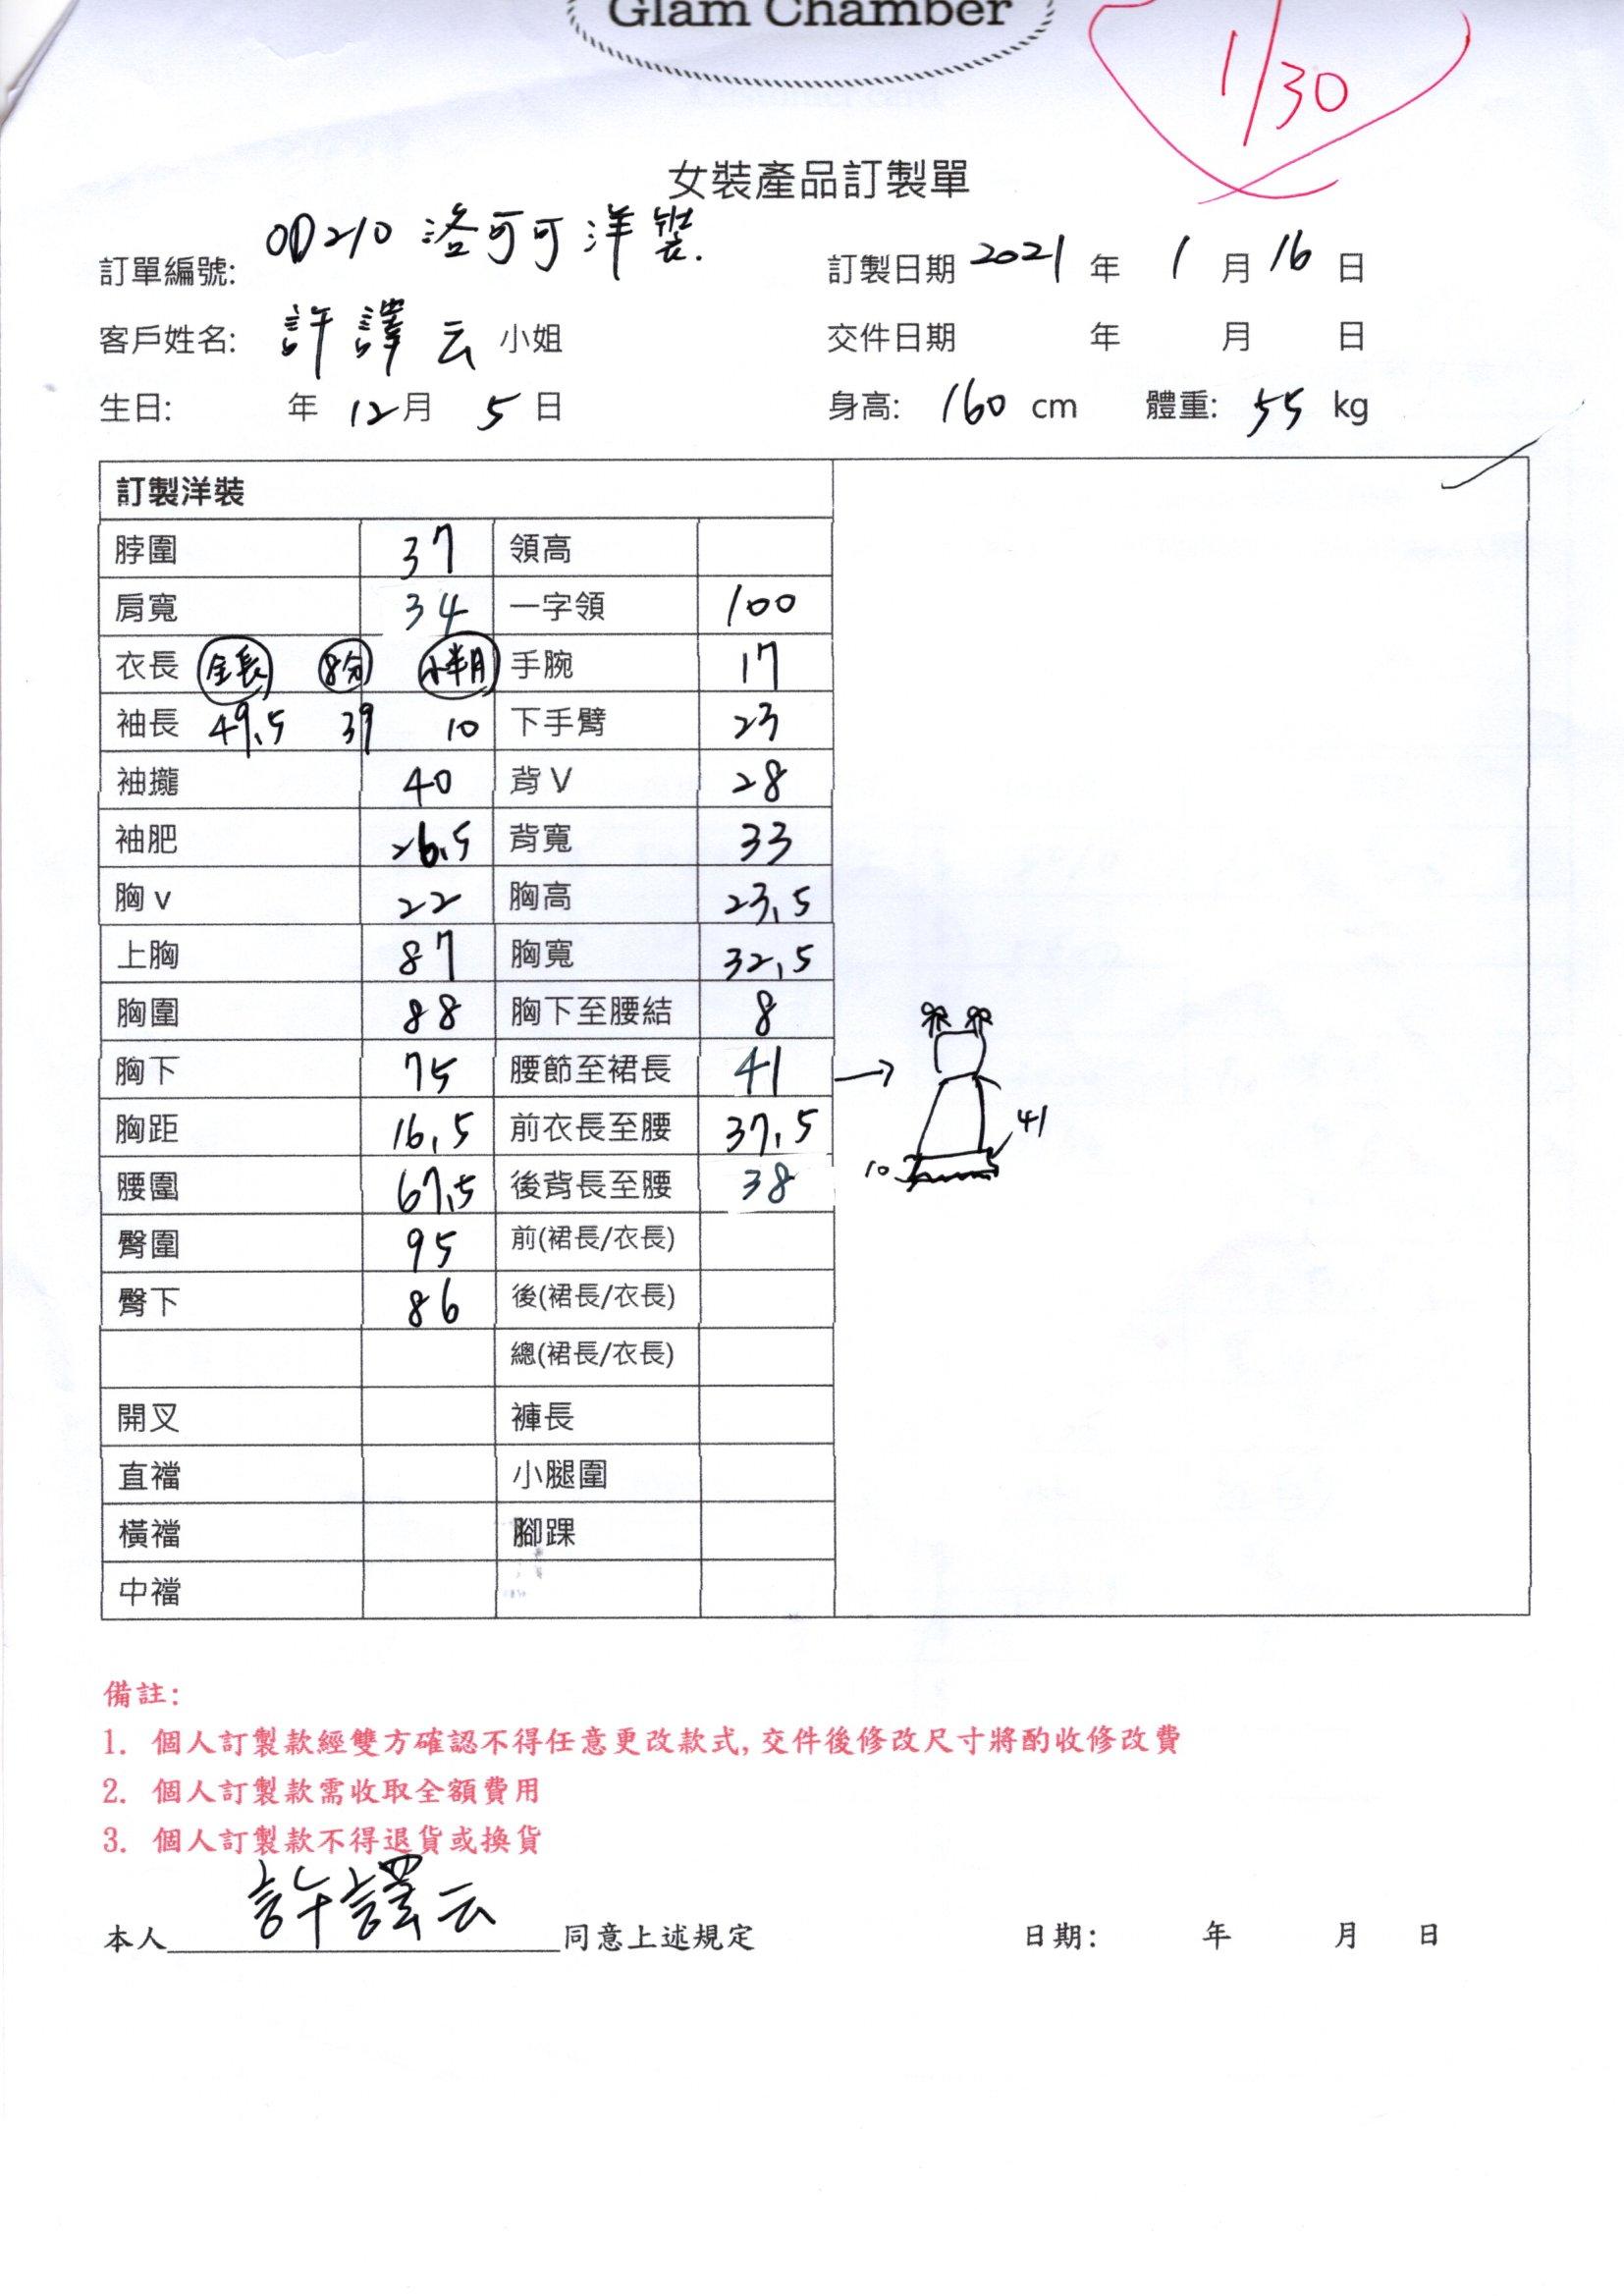 Glam Chamber
1/30
女裝產品訂製單
訂單編號: OD210 洛可可洋裝.
訂製日期 2021 年 1 月 16 日
客戶姓名: 許譯云 小姐
交件日期 年 月 日
生日: 年 12 月 5 日
身高: 160 cm 體重: 55 kg
訂製洋裝
脖圍 37 領高
肩寬 34 一字領 100
衣長 全長 8分 小半月 手腕 17
袖長 49.5 39 10 下手臂 23
袖攏 40 背V 28
袖肥 26.5 背寬 33
胸v 22 胸高 23.5
上胸 87 胸寬 32.5
胸圍 88 胸下至腰結 8
胸下 75 腰節至裙長 41 →
胸距 16.5 前衣長至腰 37.5
41
10
腰圍 67.5 後背長至腰 38
臀圍 95 前(裙長/衣長)
臀下 86 後(裙長/衣長)
總(裙長/衣長)
開叉 褲長
直襠 小腿圍
橫襠 腳踝
中襠
備註:
1. 個人訂製款經雙方確認不得任意更改款式,交件後修改尺寸將酌收修改費
2. 個人訂製款需收取全額費用
3. 個人訂製款不得退貨或換貨
本人 許譯云 同意上述規定 日期: 年 月 日